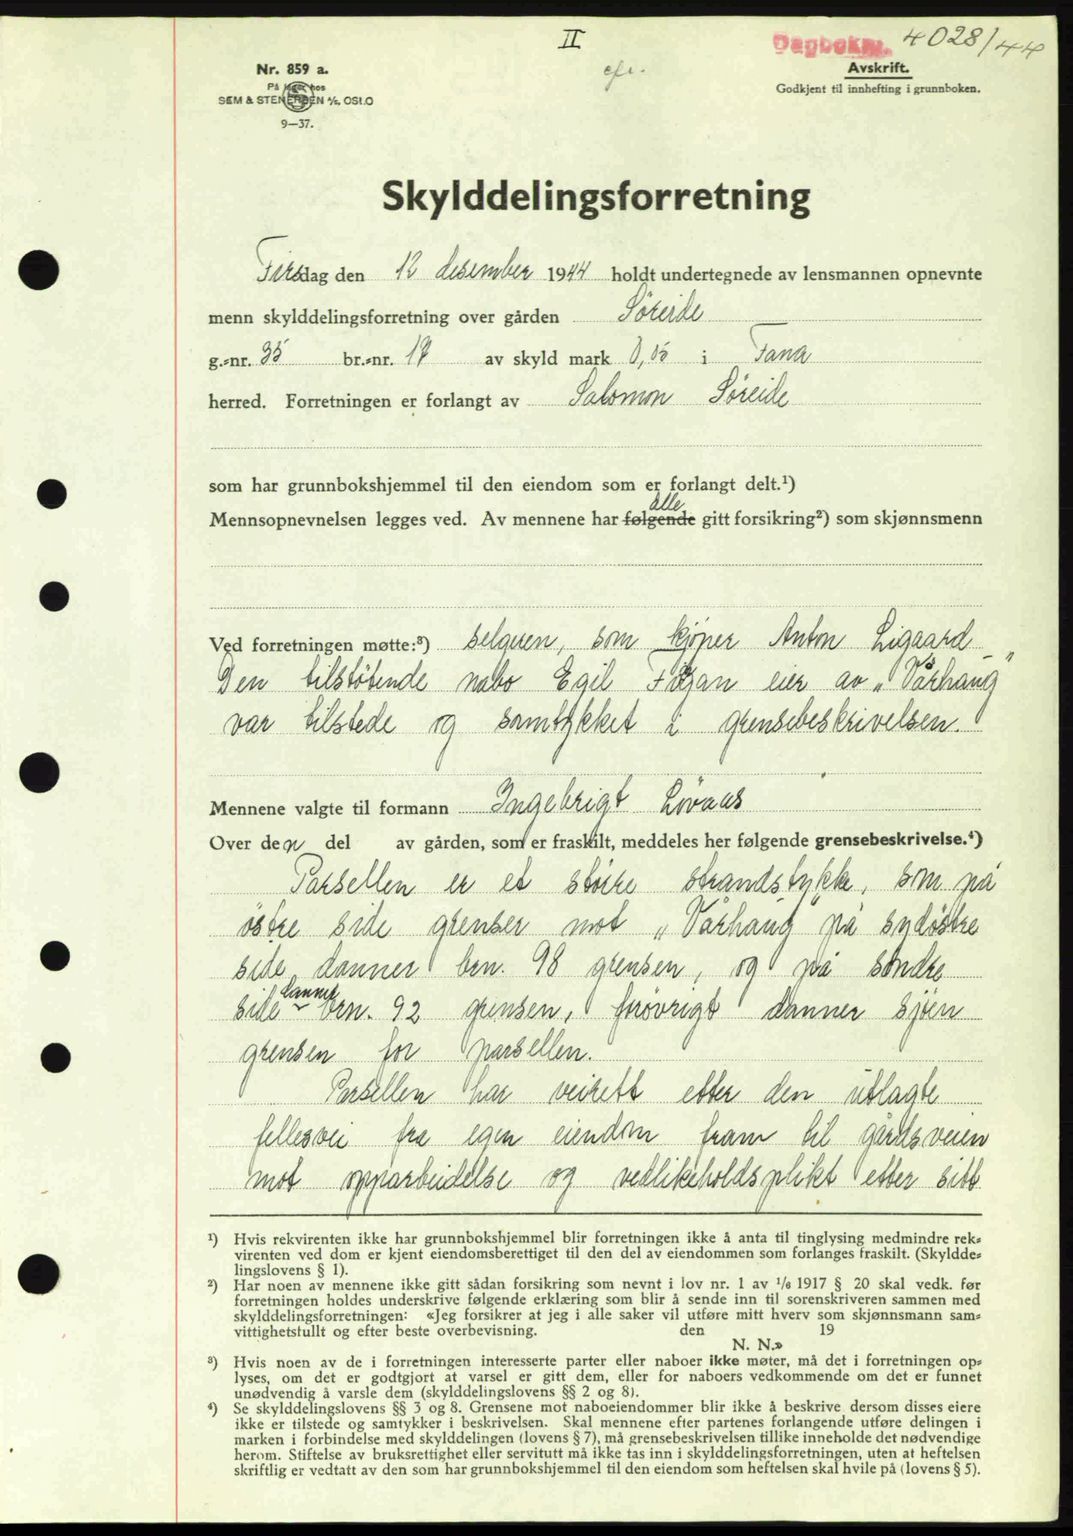 II
Dagboknr. 4028/44
Nr. 859 a.
På lager hos
SEM & STENERSEN A/S, OSLO
9—37.
Avskrift.
Godkjent til innhefting i grunnboken.
Skylddelingsforretning
Tirsdag den 12 desember 1944 holdt undertegnede av lensmannen opnevnte
menn skylddelingsforretning over gården Søreide
g.=nr. 35 br.=nr. 17 av skyld mark 0,05 i Fana
herred. Forretningen er forlangt av Salomon Søreide
som har grunnbokshjemmel til den eiendom som er forlangt delt.¹)
alle
Mennsopnevnelsen legges ved. Av mennene har følgende gitt forsikring²) som skjønnsmenn
Ved forretningen møtte:³) selgeren, som kjøper Anton Ligaard
Den tilstøtende nabo Egil eier av „Vårhaug"
var tilstede og samtykket i grensebeskrivelsen.
Mennene valgte til formann Ingebrigt Løvaas
Over den del av gården, som er fraskilt, meddeles her følgende grensebeskrivelse.⁴)
Parsellen er et større strandstykke, som på
østre side grenser mot „Vårhaug" på sydøstre
side danner brn. 98 grensen, og på søndre
side danner brn. 92 grensen, forøvrigt danner sjøen
grensen for parsellen.
Parsellen har veirett etter den utlagte
fellesvei fra egen eiendom fram til gårdsveien
mot opparbeidelse og vedlikeholdsplikt etter sitt
¹) Hvis rekvirenten ikke har grunnbokshjemmel blir forretningen ikke å anta til tinglysing medmindre rek=
virenten ved dom er kjent eiendomsberettiget til den del av eiendommen som forlanges fraskilt. (Skyldde=
lingslovens § 1).
²) Har noen av mennene ikke gitt sådan forsikring som nevnt i lov nr. 1 av 1/6 1917 § 20 skal vedk. før
forretningen holdes underskrive følgende erklæring som blir å sende inn til sorenskriveren sammen med
skylddelingsforretningen: «Jeg forsikrer at jeg i alle saker vil utføre mitt hverv som skjønnsmann sam=
vittighetsfullt og efter beste overbevisning. den 19
N. N.»
³) Hvis noen av de i forretningen interesserte parter eller naboer ikke møter, må det i forretningen op=
lyses, om det er godtgjort at varsel er gitt dem, eller for naboers vedkommende om det er funnet
unødvendig å varsle dem (skylddelingslovens §§ 2 og 8).
⁴) Se skylddelingslovens §§ 3 og 8. Grensene mot naboeiendommer blir ikke å beskrive dersom disses eiere
ikke er tilstede og samtykker i beskrivelsen. Skal mennene efter partenes forlangende utføre delingen i
marken i forbindelse med skylddelingen (lovens § 7), må grensebeskrivelsen tillike inneholde det nødvendige
herom. Stiftelse av bruksrettighet eller servitutt må ikke tas inn i skylddelingsforretningen, uten at heftelsen
skriftlig er vedtatt av den som har grunnbokshjemmel til den eiendom som heftelsen skal hvile på (lovens § 5).